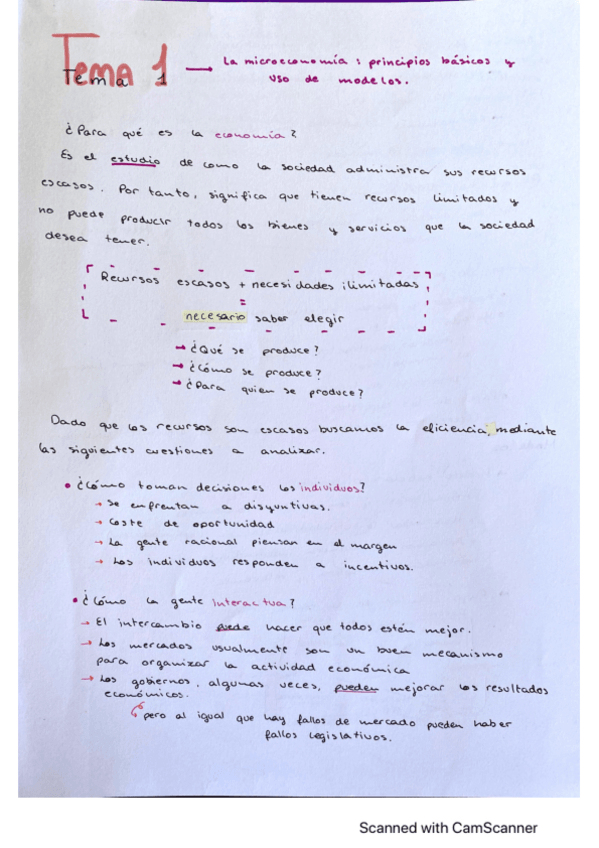 Tema 1
Tema 1 → La microeconomía : principios básicos y
uso de modelos.
¿Para qué es la economía?
Es el estudio de como la sociedad administra sus recursos
escasos. Por tanto, significa que tienen recursos limitados y
no puede producir todos los bienes y servicios que la sociedad
desea tener.
Recursos escasos + necesidades ilimitadas
=
necesario saber elegir
→ ¿Qué se produce?
→ ¿Cómo se produce?
→ ¿Para quien se produce?
Dado que los recursos son escasos buscamos la eficiencia, mediante
las siguientes cuestiones a analizar.
• ¿Cómo toman decisiones los individuos?
→ Se enfrentan a disyuntivas.
→ Coste de oportunidad
→ La gente racional piensan en el margen
→ Los individuos responden a incentivos.
• ¿Cómo la gente interactua?
→ El intercambio puede hacer que todos estén mejor.
→ Los mercados usualmente son un buen mecanismo
para organizar la actividad económica
→ Los gobiernos, algunas veces, pueden mejorar los resultados
económicos.
pero al igual que hay fallos de mercado pueden haber
fallos legislativos.
Scanned with CamScanner